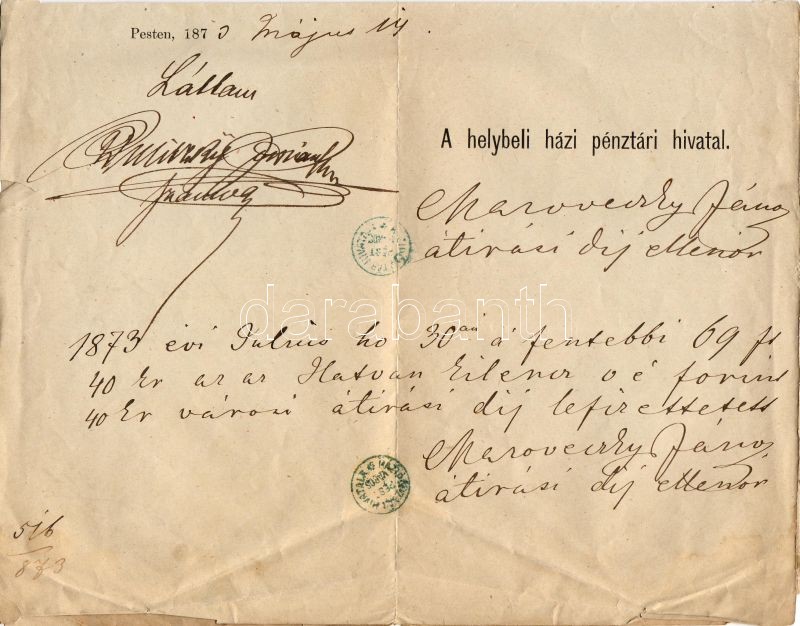 Pesten, 1873 Május 14.
Láttam
A helybeli házi pénztári hivatal.
Maroveczky János
átirási dij ellenör
darabanth
1873 évi Julius hó 30án a fentebbi 69 ft
40 kr az az Hatvan kilencz o é forint
40 kr városi átirási dij lefizettetett
Maroveczky János
átirási dij ellenör
516
873